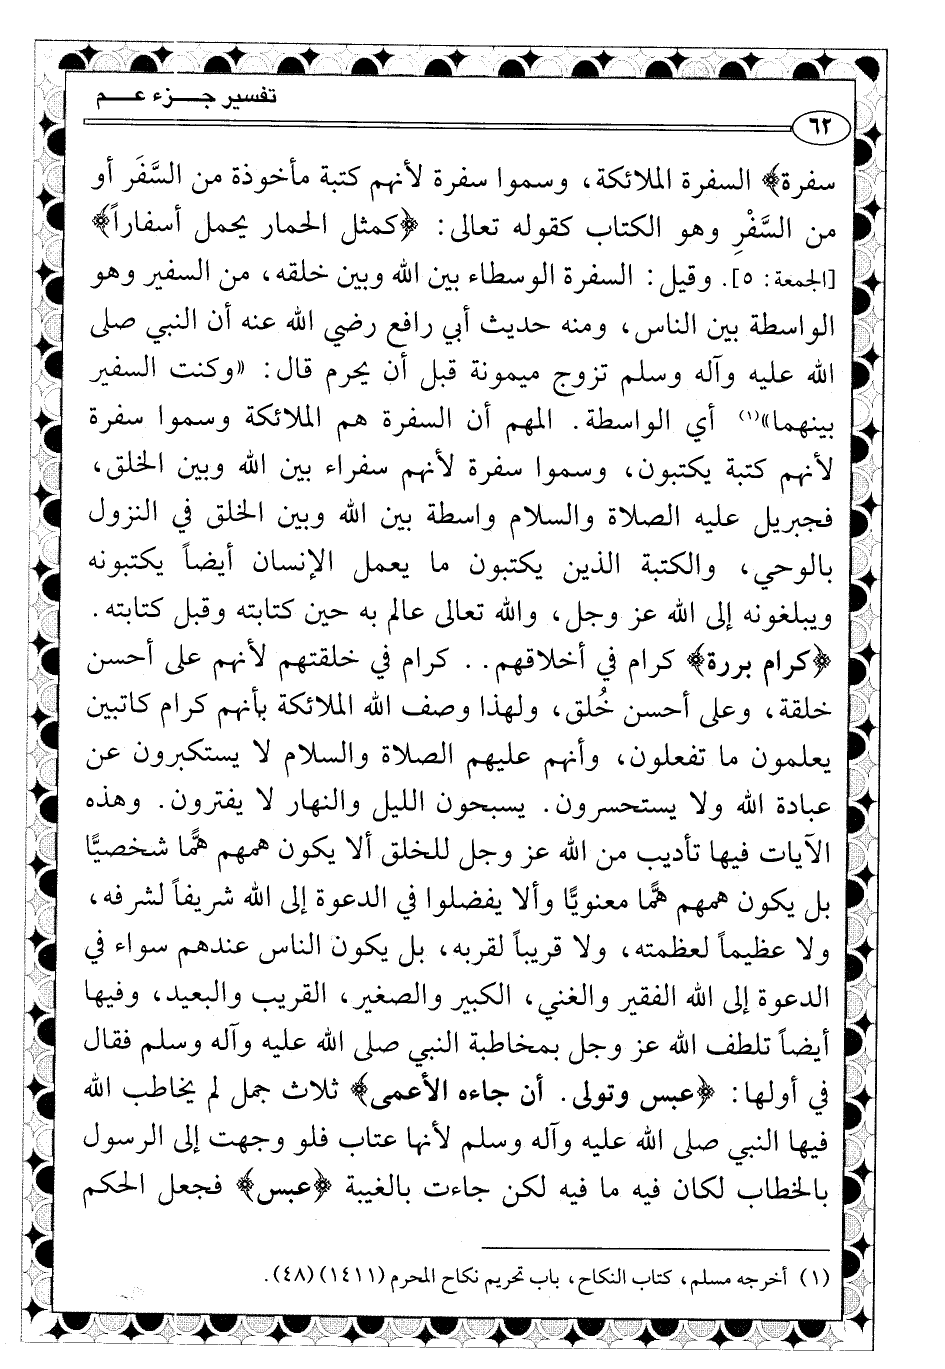 تفسير جـــزء عـــم
٦٢
سفرة﴾ السفرة الملائكة، وسموا سفرة لأنهم كتبة مأخوذة من السَّفَر أو
من السَّفْرِ وهو الكتاب كقوله تعالى: ﴿كمثل الحمار يحمل أسفاراً﴾
[الجمعة: ٥]. وقيل: السفرة الوسطاء بين الله وبين خلقه، من السفير وهو
الواسطة بين الناس، ومنه حديث أبي رافع رضي الله عنه أن النبي صلى
الله عليه وآله وسلم تزوج ميمونة قبل أن يحرم قال: «وكنت السفير
بينهما»(١) أي الواسطة. المهم أن السفرة هم الملائكة وسموا سفرة
لأنهم كتبة يكتبون، وسموا سفرة لأنهم سفراء بين الله وبين الخلق،
فجبريل عليه الصلاة والسلام واسطة بين الله وبين الخلق في النزول
بالوحي، والكتبة الذين يكتبون ما يعمل الإنسان أيضاً يكتبونه
ويبلغونه إلى الله عز وجل، والله تعالى عالم به حين كتابته وقبل كتابته.
﴿كرام بررة﴾ كرام في أخلاقهم.. كرام في خلقتهم لأنهم على أحسن
خلقة، وعلى أحسن خُلق، ولهذا وصف الله الملائكة بأنهم كرام كاتبين
يعلمون ما تفعلون، وأنهم عليهم الصلاة والسلام لا يستكبرون عن
عبادة الله ولا يستحسرون. يسبحون الليل والنهار لا يفترون. وهذه
الآيات فيها تأديب من الله عز وجل للخلق ألا يكون همهم همًّا شخصيًّا
بل يكون همهم همًّا معنويًّا وألا يفضلوا في الدعوة إلى الله شريفاً لشرفه،
ولا عظيماً لعظمته، ولا قريباً لقربه، بل يكون الناس عندهم سواء في
الدعوة إلى الله الفقير والغني، الكبير والصغير، القريب والبعيد، وفيها
أيضاً تلطف الله عز وجل بمخاطبة النبي صلى الله عليه وآله وسلم فقال
في أولها: ﴿عبس وتولى. أن جاءه الأعمى﴾ ثلاث جمل لم يخاطب الله
فيها النبي صلى الله عليه وآله وسلم لأنها عتاب فلو وجهت إلى الرسول
بالخطاب لكان فيه ما فيه لكن جاءت بالغيبة ﴿عبس﴾ فجعل الحكم
(١) أخرجه مسلم، كتاب النكاح، باب تحريم نكاح المحرم (١٤١١) (٤٨).